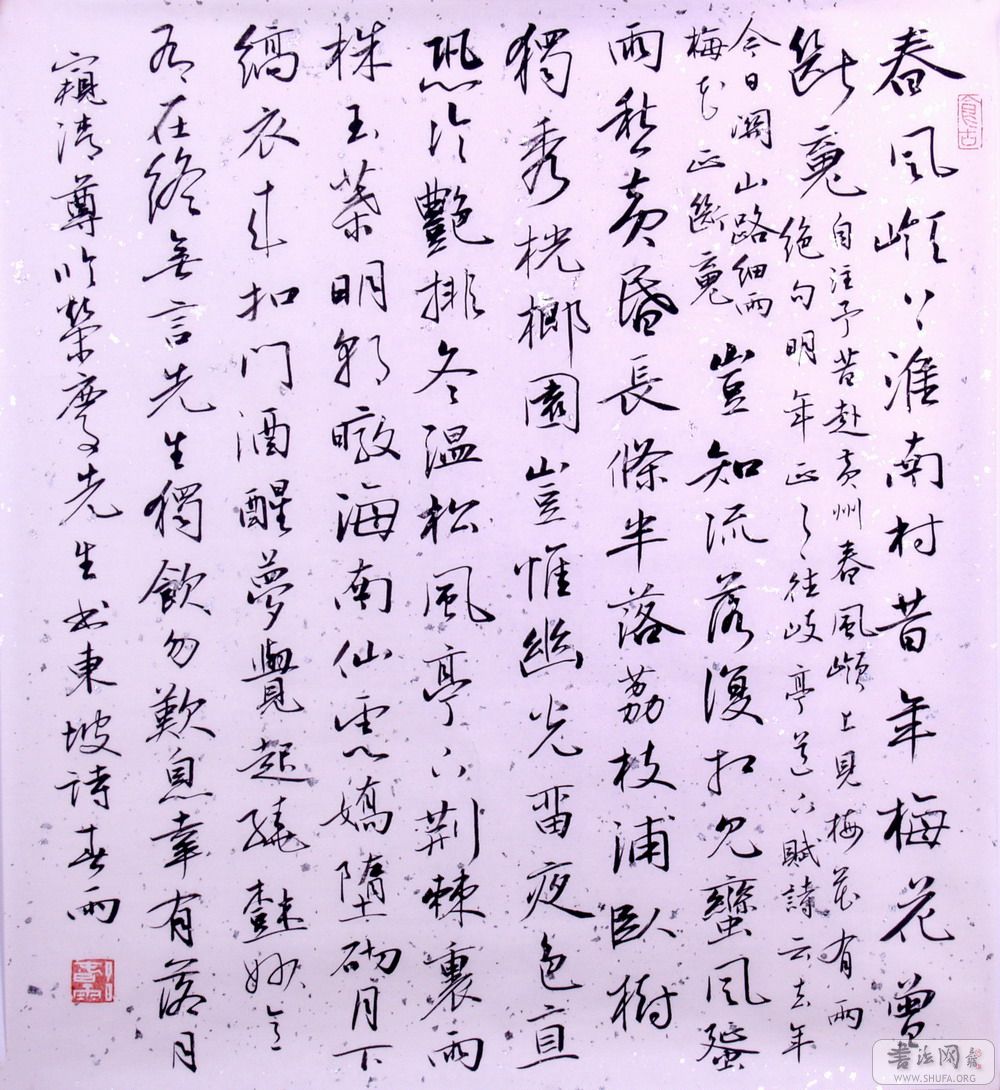 春風嶺上淮南村昔年梅花曾
斷䰟
自注予昔赴黃州春風嶺上見梅花有兩
絕句明年正月往岐亭道上賦詩云去年
今日關山路細雨
梅花正斷䰟
豈知流落復相見蠻風蜑
雨愁黃昏長條半落荔枝浦臥樹
獨秀桄榔園豈惟幽光畱夜色直
恐冷艷排冬溫松風亭下荊棘裏兩
株玉蘂明朝暾海南仙雲嬌墮砌月下
縞衣來扣門酒醒夢覺起繞樹妙意
有在終無言先生獨飲勿歎息幸有落月
窺清尊先生書東坡詩春雨
食古
書法网
WWW.SHUFA.ORG